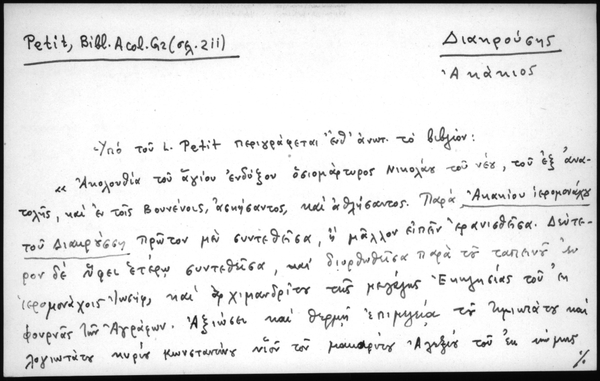 Petit, Bibl. Acol. Gr (σελ. 211)
Διακρούσης
Ἀκάκιος
Ὑπό τοῦ L. Petit περιγράφεται ἐνθ' ἀνωτ. τό βιβλίον:
«Ἀκολουθία τοῦ ἁγίου ἐνδόξου ὁσιομάρτυρος Νικολάου τοῦ νέου, τοῦ ἐξ ἀνα-
τολῆς, καί ἐν τοῖς Βουνένοις, ἀσκήσαντος, καί ἀθλήσαντος. Παρά Ἀκακίου ἱερομονάχου
τοῦ Διακρούση πρῶτον μέν συντεθεῖσα, ἤ μᾶλλον εἰπεῖν ἐρανισθεῖσα. Δεύτε-
ρον δέ ὕφει ἑτέρῳ συντεθεῖσα, καί διορθωθεῖσα παρά τοῦ ταπεινοῦ ἐν
ἱερομονάχοις Ἰωσήφ, καί ἀρχιμανδρίτου τῆς μεγάλης Ἐκκλησίας τοῦ ἐκ
φουρνᾶς τῶν Ἀγράφων. Ἀξιώσει καί θερμῇ ἐπιμελείᾳ τοῦ τιμιωτάτου καί
λογιωτάτου κυρίου κωνσταντίνου υἱοῦ τοῦ μακαρίτου Ἀλεξίου τοῦ ἐκ κώμης
%